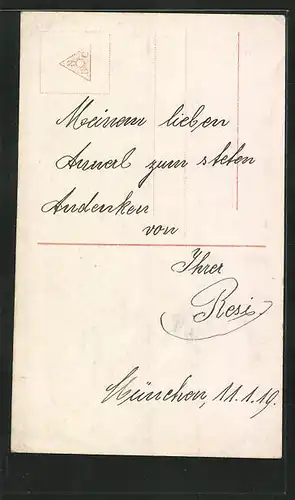 Meinem lieben
zum steten
Andenken
von
Ihrer
Resi
München, 11.1.19.